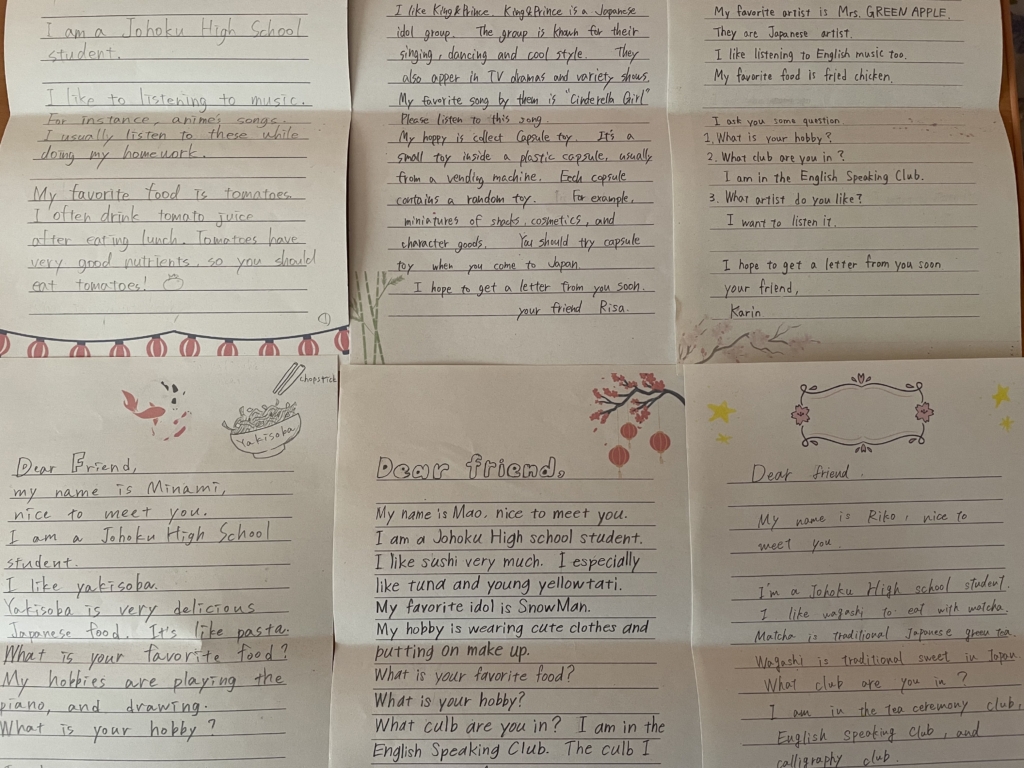 I am a Johoku High School
student.
I like to listening to music.
For instance, anime's songs.
I usually listen to these while
doing my homework.
My favorite food is tomatoes.
I often drink tomato juice
after eating lunch. Tomatoes have
very good nutrients, so you should
eat tomatoes!
①
I like King&Prince. King&Prince is a Japanese
idol group. The group is known for their
singing, dancing and cool style. They
also apper in TV dramas and variety shows.
My favorite song by them is "Cinderella Girl"
Please listen to this song.
My hoppy is collect Capsule toy. It's a
small toy inside a plastic capsule, usually
from a vending machine. Eech capsule
contains a random toy. For example,
miniatures of snacks, cosmetics, and
character goods. You should try capsule
toy when you come to Japan.
I hope to get a letter from you soon.
your friend Risa.
My favorite artist is Mrs. GREEN APPLE.
They are Japanese artist.
I like listening to English music too.
My favorite food is fried chicken.
I ask you some question
1. What is your hobby?
2. What club are you in?
I am in the English Speaking Club.
3. What artist do you like?
I want to listen it.
I hope to get a letter from you soon
your friend,
Karin
chopstick
Yakisoba
Dear Friend,
my name is Minami,
nice to meet you.
I am a Johoku High School
student.
I like yakisoba.
Yakisoba is very delicious
Japanese food. It's like pasta.
What is your favorite food?
My hobbies are playing the
piano, and drawing.
What is your hobby?
Dear friend,
My name is Mao, nice to meet you.
I am a Johoku High school student.
I like sushi very much. I especially
like tuna and young yellowtati.
My favorite idol is SnowMan.
My hobby is wearing cute clothes and
putting on make up.
What is your favorite food?
What is your hobby?
What culb are you in? I am in the
English Speaking Club. The culb I
Dear friend.
My name is Riko, nice to
meet you.
I'm a Johoku High school student.
I like wagashi to eat with matcha.
Matcha is traditional Japanese green tea.
Wagashi is traditional sweet in Japan.
What club are you in?
I am in the tea ceremony club,
English speaking club, and
calligraphy club.